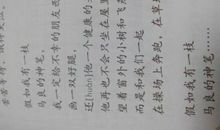 假如我有一枝
马良的神笔
我一定给不幸的朋友西
画一双好腿，
还[huán]他一个健康的
他再也不会只坐在屋
望着窗外的小树和飞
而是和我们一起
在操场上奔跑，在草
假如我有一枝
马良的神笔……